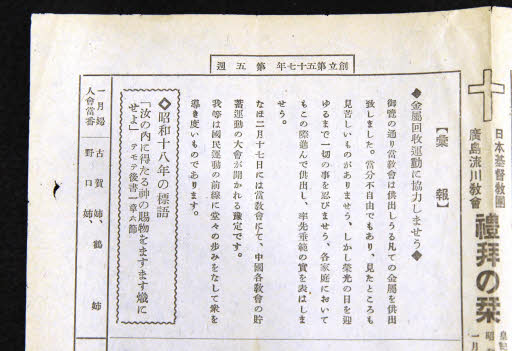 日本基督教團
廣島流川教會
禮拜の栞
創立第五十七年 第五週
【彙報】
◆金屬回收運動に協力しませう◆
御覽の通り當教會は供出しうる凡ての金屬を供出
致しました。當分不自由でもあり、見たところも
見苦しいものがありませう、しかし榮光の日を迎
ゆるまで一切の事を忍びませう、各家庭において
もこの際進んで供出し、率先垂範の實を表はしま
せう。
なほ二月十七日には當教會にて、中國各教會の貯
蓄運動の大會が開かれる豫定です。
我等は國民運動の前線に堂々の歩みをなして衆を
導き度いものであります。
◇昭和十八年の標語
「汝の內に得たる神の賜物をますます熾に
せよ」 テモテ後書一章六節
一月婦
人會當番
古賀姉、鶴姉
野口姉、